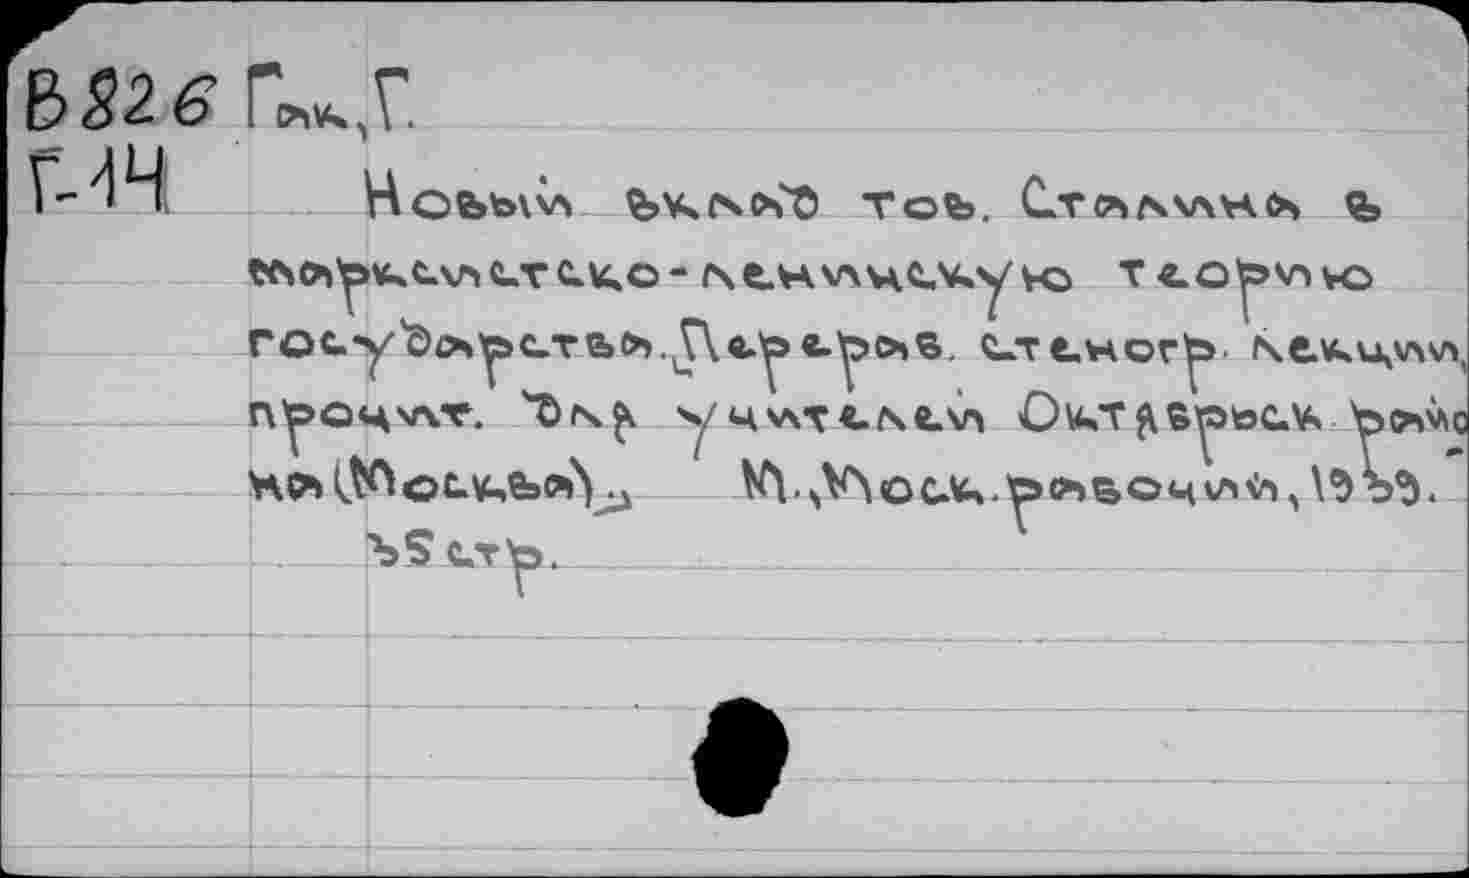 В826 Гак, Г.
Г-14 Новый вклад тов. Сталина в
марксистско-ленинскую теорию
государства. [Перераб. стеногр. лекции,
процит. для учителей Октябрьск. райо-
на (Москва)] М., Моск. рабочий, 1939.
38 стр.